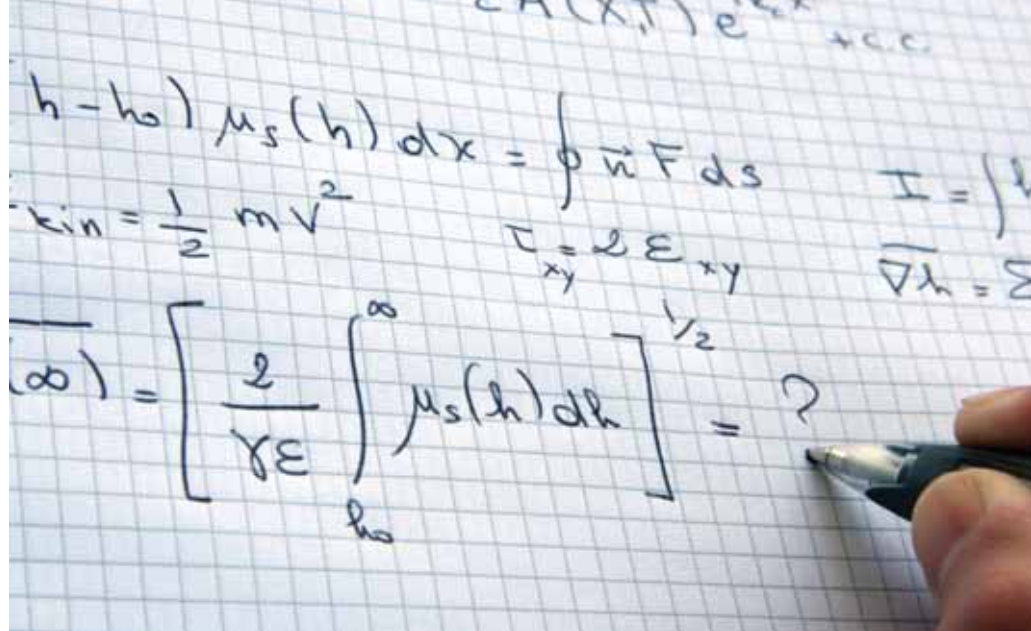 A(x,T) e + c.c.
h - h₀) μₛ(h) dx = ∮ n⃗ F ds
I = ∫
kin = 1/2 mv²
τ_xy = 2 ε_xy
∇h = Σ
(∞) = [ 2/(γε) ∫_{h₀}^{∞} μₛ(h) dh ]^{1/2} = ?